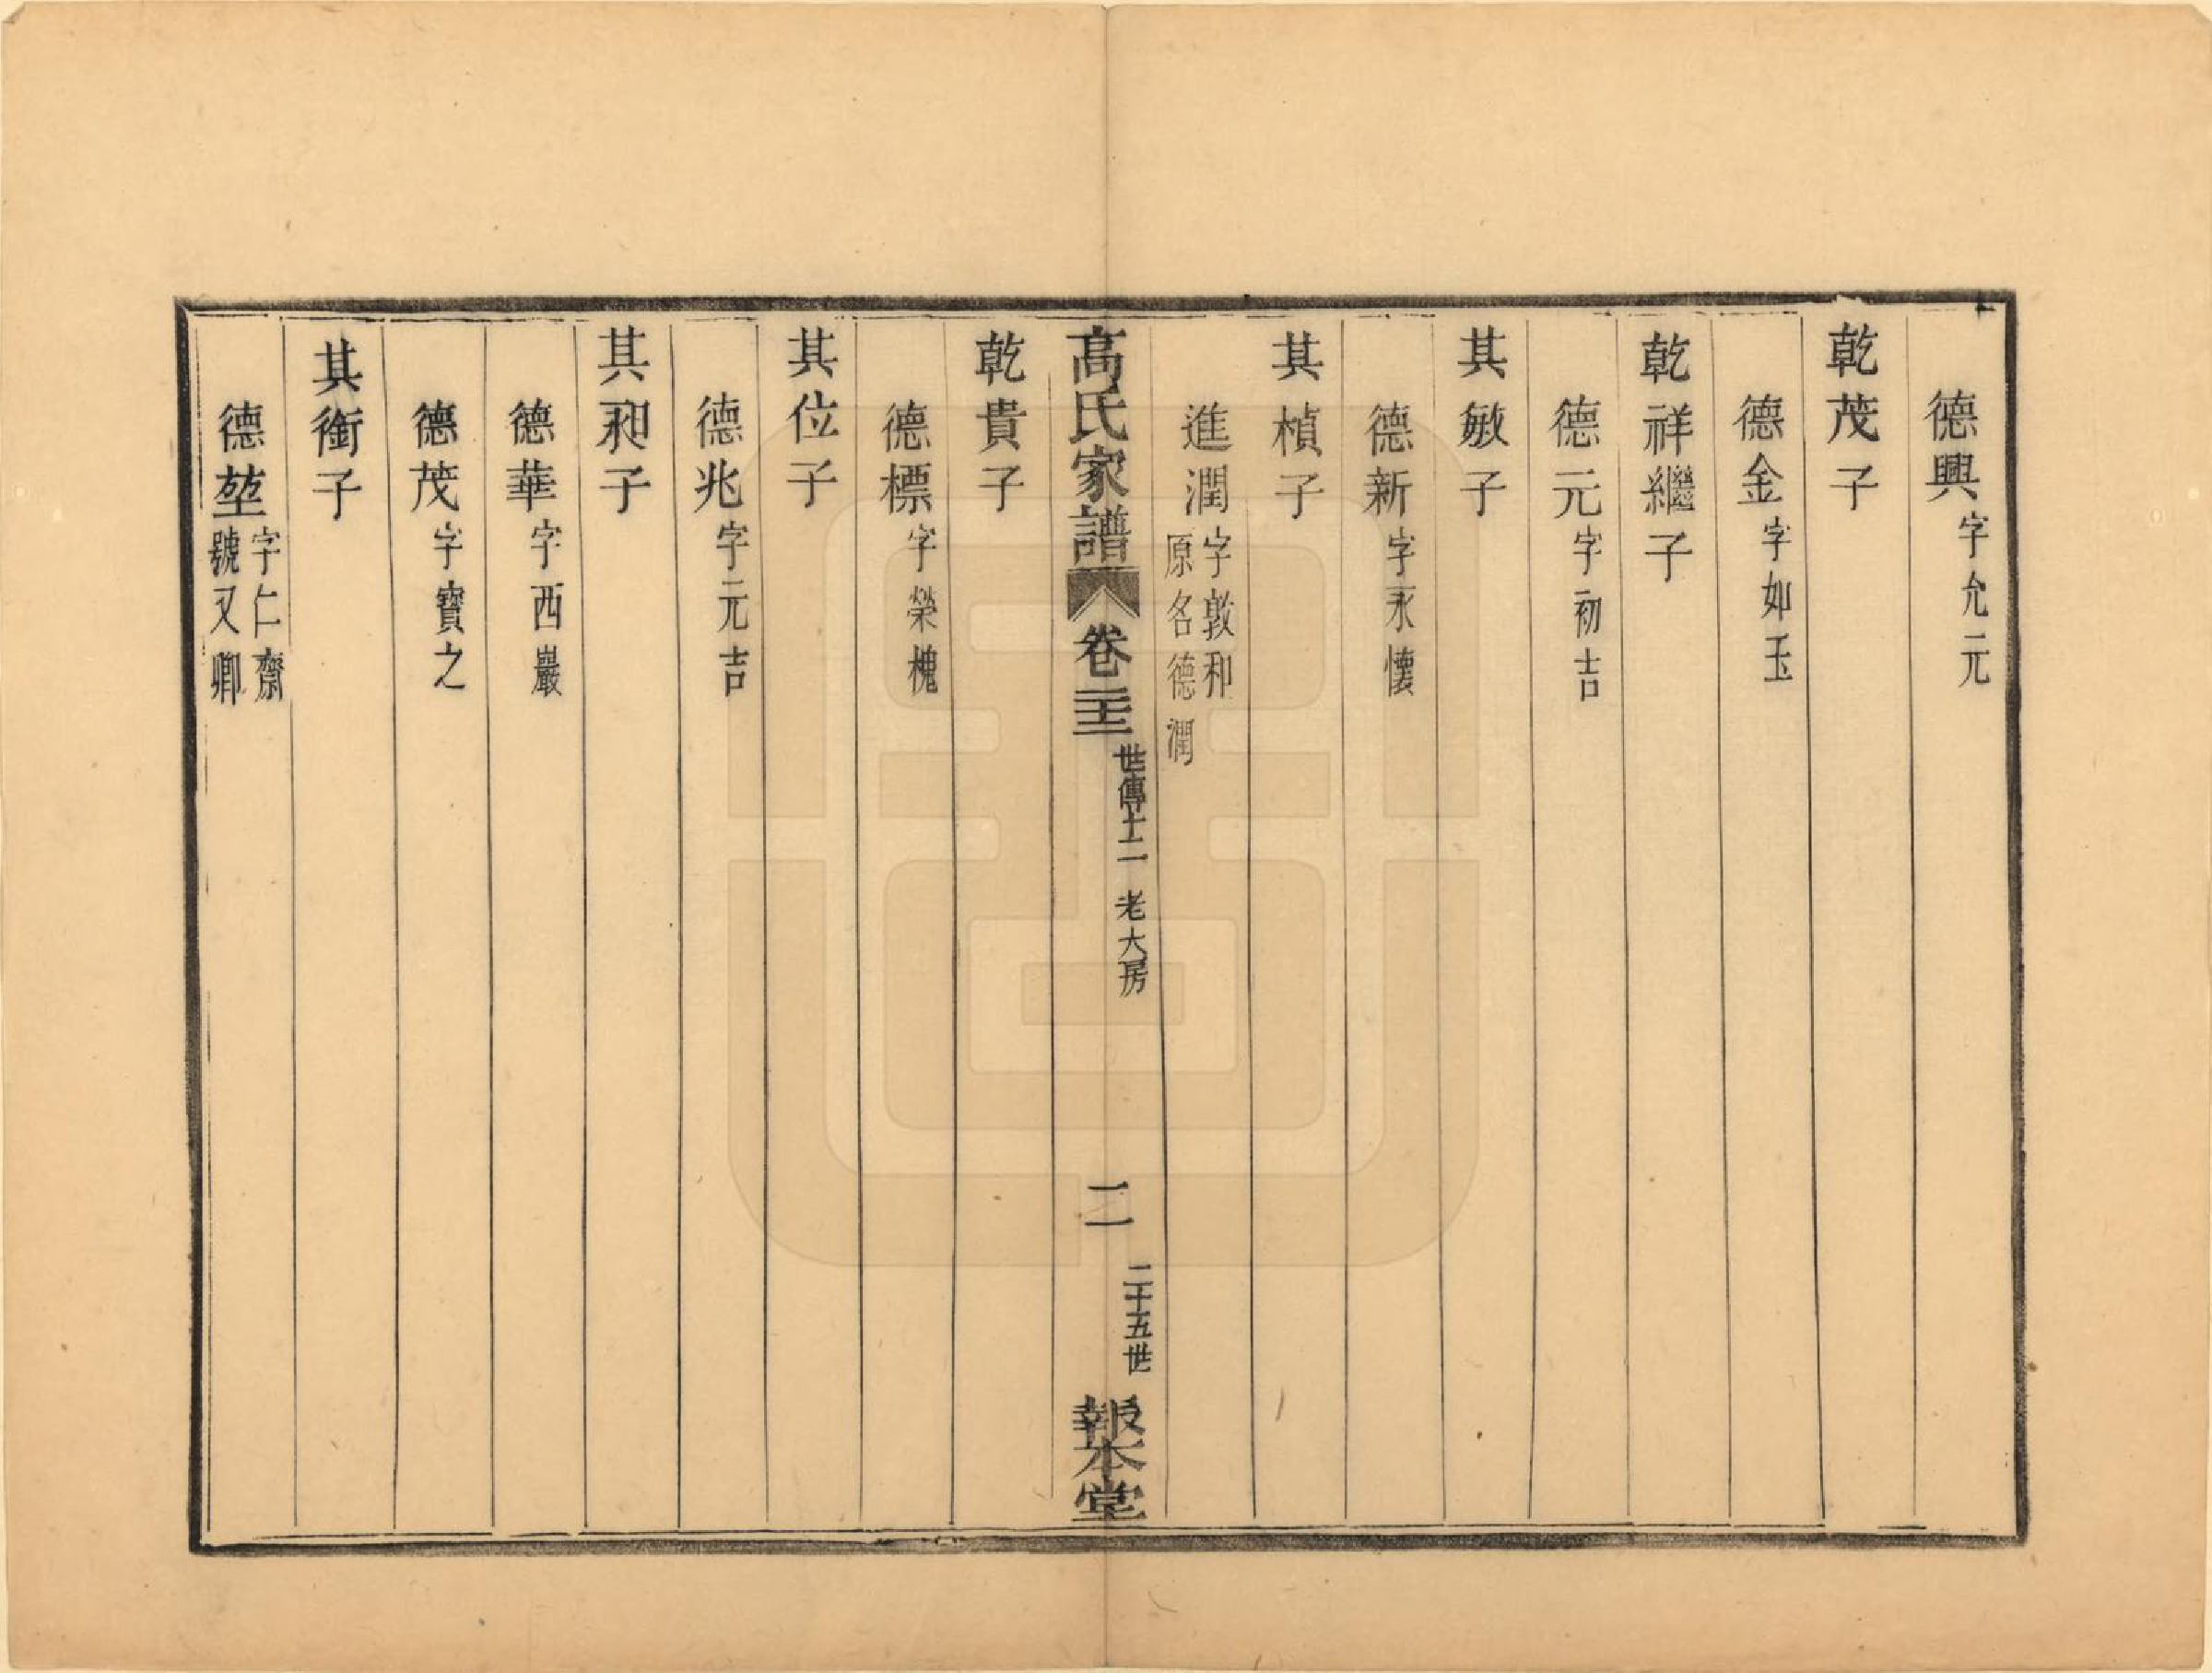 德興字允元
乾茂子
德金字如玉
乾祥繼子
德元字初吉
其敏子
德新字永懷
其楨子
進潤字敦和
原名德潤
高氏家譜
卷二十三
世傳十二 老大房
二
二十五世
報本堂
乾貴子
德標字榮槐
其位子
德兆字元吉
其和子
德華字西巖
德茂字寶之
其銜子
德堃字仁齋
號又卿